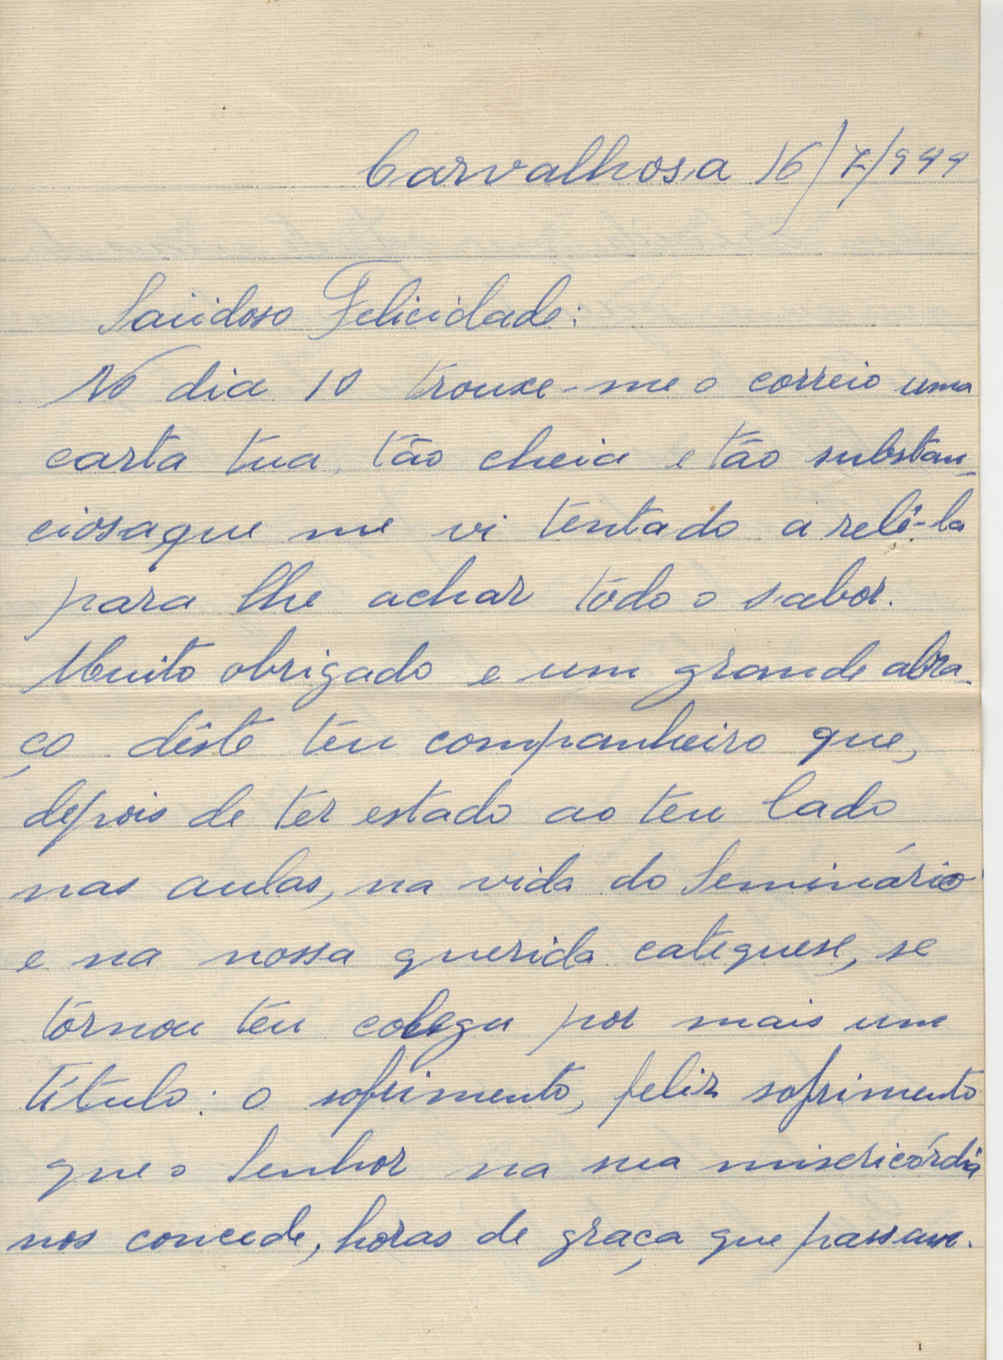 Carvalhosa 16/7/949
Saüdoso Felicidade:
No dia 10 trouxe-me o correio uma
carta tua, tão cheia e tão substan-
ciosa que me vi tentado a relê-la
para lhe achar todo o sabor.
Muito obrigado e um grande abra-
ço dêste teu companheiro que,
depois de ter estado ao teu lado
nas aulas, na vida do Seminário
e na nossa querida catequese, se
tornou teu colega por mais um
título: o sofrimento, feliz sofrimento
que o Senhor na sua misericórdia
nos concede, horas de graça que passam.